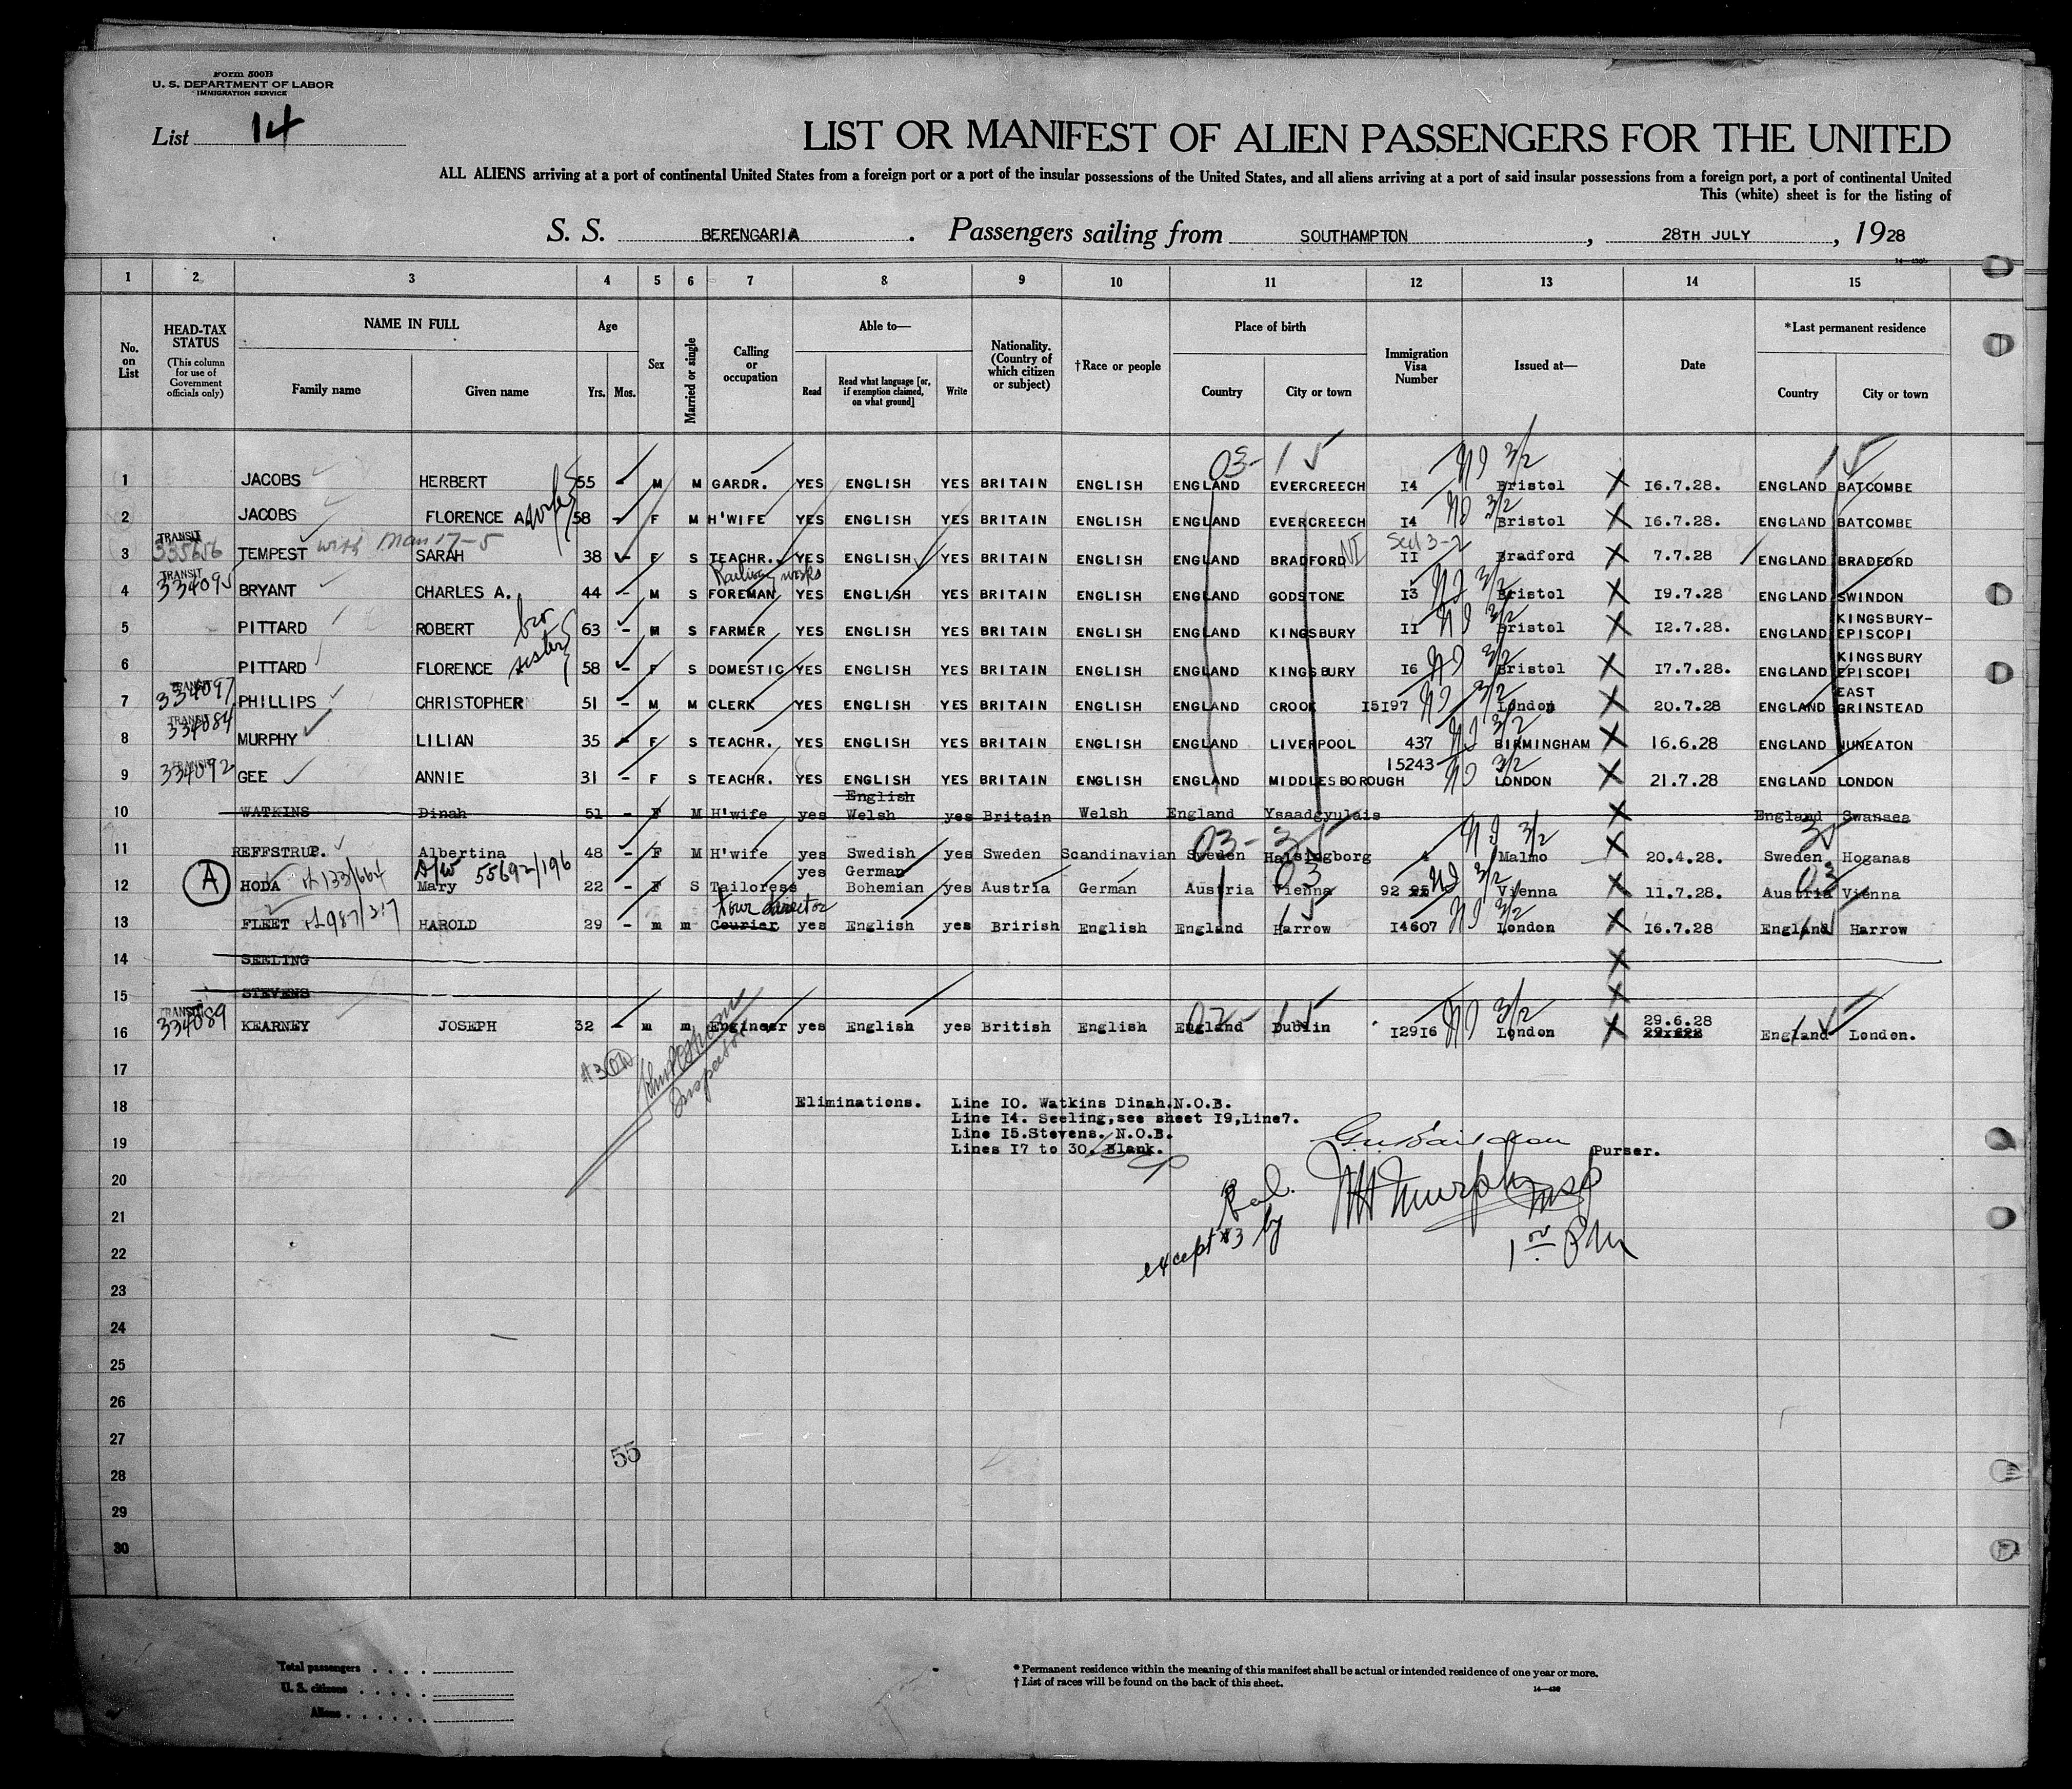 Form 500B
U. S. DEPARTMENT OF LABOR
IMMIGRATION SERVICE
List 14
LIST OR MANIFEST OF ALIEN PASSENGERS FOR THE UNITED
ALL ALIENS arriving at a port of continental United States from a foreign port or a port of the insular possessions of the United States, and all aliens arriving at a port of said insular possessions from a foreign port, a port of continental United
This (white) sheet is for the listing of
S. S. BERENGARIA . Passengers sailing from SOUTHAMPTON , 28TH JULY , 1928
1 2 3 4 5 6 7 8 9 10 11 12 13 14 15
No. on List
HEAD-TAX STATUS (This column for use of Government officials only)
NAME IN FULL Family name Given name
Age Yrs. Mos.
Sex
Married or single
Calling or occupation
Able to— Read Read what language [or, if exemption claimed, on what ground] Write
Nationality. (Country of which citizen or subject)
†Race or people
Place of birth Country City or town
Immigration Visa Number
Issued at—
Date
*Last permanent residence Country City or town
03- 15 NI 3/2 15
1 JACOBS HERBERT 55 - M M GARDR. YES ENGLISH YES BRITAIN ENGLISH ENGLAND EVERCREECH I4 Bristol X I6.7.28. ENGLAND BATCOMBE
2 JACOBS FLORENCE A wife 58 - F M H'WIFE YES ENGLISH YES BRITAIN ENGLISH ENGLAND EVERCREECH I4 NI 3/2 Bristol X I6.7.28. ENGLAND BATCOMBE
TRANSIT
3 335656 TEMPEST with Man 17-5 SARAH 38 - F S TEACHR. YES ENGLISH YES BRITAIN ENGLISH ENGLAND BRADFORD NI II Sec 3-2 Bradford X 7.7.28 ENGLAND BRADFORD
TRANSIT Railway works
4 334095 BRYANT CHARLES A. 44 - M S FOREMAN YES ENGLISH YES BRITAIN ENGLISH ENGLAND GODSTONE I3 NI 3/2 Bristol X I9.7.28 ENGLAND SWINDON
5 PITTARD ROBERT bro 63 - M S FARMER YES ENGLISH YES BRITAIN ENGLISH ENGLAND KINGSBURY II NI 3/2 Bristol X I2.7.28. ENGLAND KINGSBURY-EPISCOPI
6 PITTARD FLORENCE sister 58 - F S DOMESTIC YES ENGLISH YES BRITAIN ENGLISH ENGLAND KINGSBURY I6 NI 3/2 Bristol X I7.7.28. ENGLAND KINGSBURY EPISCOPI
TRANSIT
7 334097 PHILLIPS CHRISTOPHER 51 - M M CLERK YES ENGLISH YES BRITAIN ENGLISH ENGLAND CROOK I5I97 NI 3/2 London X 20.7.28 ENGLAND EAST GRINSTEAD
TRANSIT
8 334084 MURPHY LILIAN 35 - F S TEACHR. YES ENGLISH YES BRITAIN ENGLISH ENGLAND LIVERPOOL 437 NI 3/2 BIRMINGHAM X I6.6.28 ENGLAND NUNEATON
TRANSIT
9 334092 GEE ANNIE 31 - F S TEACHR. YES ENGLISH YES BRITAIN ENGLISH ENGLAND MIDDLESBOROUGH I5243 NI 3/2 LONDON X 21.7.28 ENGLAND LONDON
English
10 WATKINS Dinah 51 - F M H'wife yes Welsh yes Britain Welsh England Ysaadgyulais X England Swansea
03- 35 NI 3/2 35
11 REFFSTRUP. Albertina 48 - F M H'wife yes Swedish yes Sweden Scandinavian Sweden Halsingborg 4 Malmo X 20.4.28. Sweden Hoganas
A/W 55692/196 yes German 03 03
12 (A) HODA 133/664 Mary 22 - F S Tailoress Bohemian yes Austria German Austria Vienna 92 NI 3/2 Vienna X 11.7.28. Austria Vienna
tour director 15
13 FLEET 987/317 HAROLD 29 - m m Courier yes English yes Brirish English England Harrow I4607 NI 3/2 London X I6.7.28 England Harrow
14 SEELING X
15 STEVENS X
TRANSIT 29.6.28
16 334089 KEARNEY JOSEPH 32 - m m Engineer yes English yes British English England Dublin I29I6 NI 3/2 London X England London.
17
#3
Inspector
18 Eliminations. Line IO. Watkins Dinah.N.O.B.
Line I4. Seeling,see sheet I9,Line7.
19 Line I5.Stevens. N.O.B.
Lines I7 to 30. Blank. Purser.
20
21 except #3 by W H Murphy Insp
22
23
24
25
26
27
55
28
29
30
Total passengers
U. S. citizens
Aliens
* Permanent residence within the meaning of this manifest shall be actual or intended residence of one year or more.
† List of races will be found on the back of this sheet.